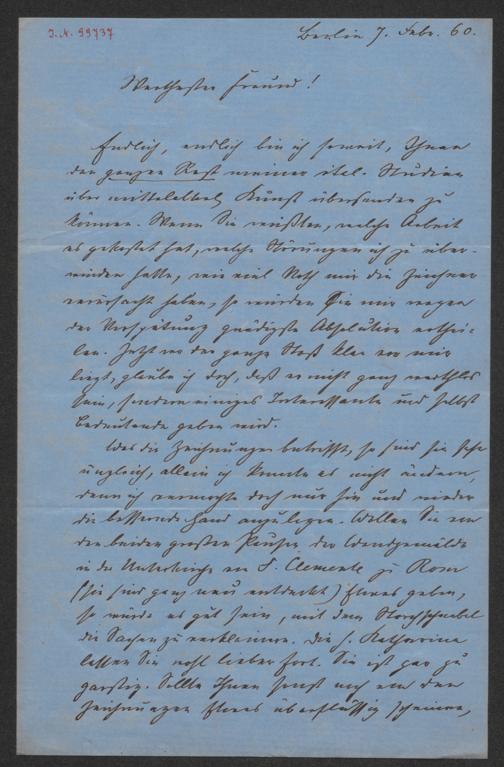 J.N. 99737
Berlin 7. Febr. 60.
Werthester Freund!
Endlich, endlich bin ich soweit, Ihnen
den ganzen Rest meiner ital. Studien
über mittelalterl. Kunst übersenden zu
können. Wenn Sie wüßten, welche Arbeit
es gekostet hat, welche Störungen ich zu über-
winden hatte, wie viel Noth mir die Zeichner
verursacht haben, so würden Sie mir wegen
der Verspätung gnädigste Absolution erthei-
len. Jetzt wo der ganze Stoß klar vor mir
liegt, glaube ich doch, daß es nicht ganz werthlos
sein, sondern einiges Interessante und selbst
Bedeutende geben wird.
Was die Zeichnungen betrifft, so sind sie sehr
ungleich, allein ich konnte es nicht ändern,
denn ich vermochte doch nur hin und wieder
die bessernde Hand anzulegen. Wollen Sie von
den beiden großen Pausen der Wandgemälde
in der Unterkirche von S. Clemente zu Rom
(sie sind ganz neu entdeckt) Etwas geben,
so würde es gut sein, mit dem Storchschnabel
die Sachen zu verkleinern. Die h. Katharina
lassen Sie wohl lieber fort. Sie ist gar zu
garstig. Sollte Ihnen sonst noch von den
Zeichnungen Etwas überflüssig scheinen,